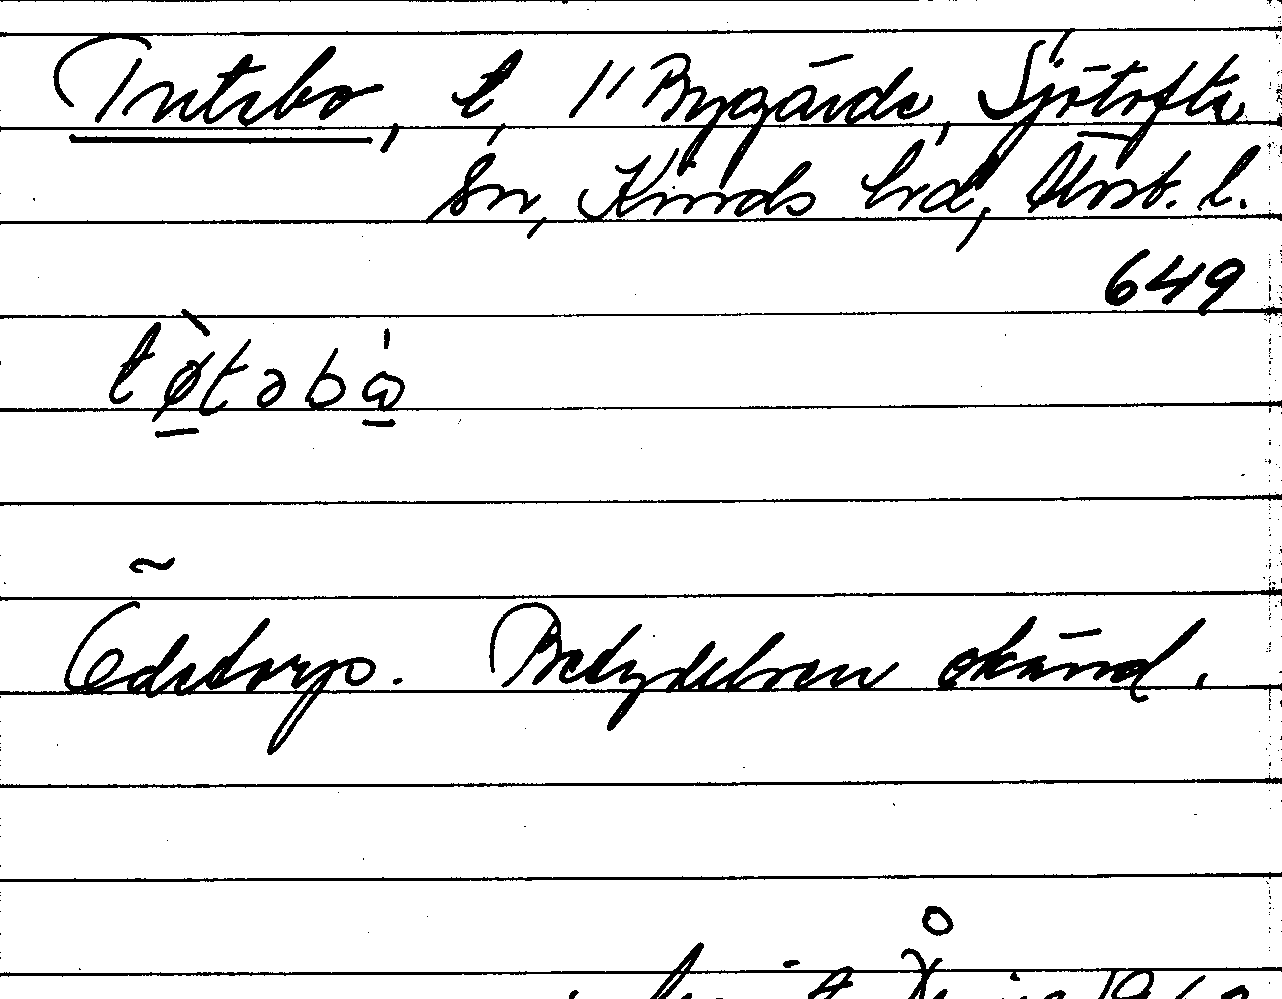 Tutebo, t, 1/1 Bygärde, Sjötofta
sn, Kinds hrd, Älvsb. l.
649
tø̀təbå̀
~
Ödetorp. Betydelsen okänd.